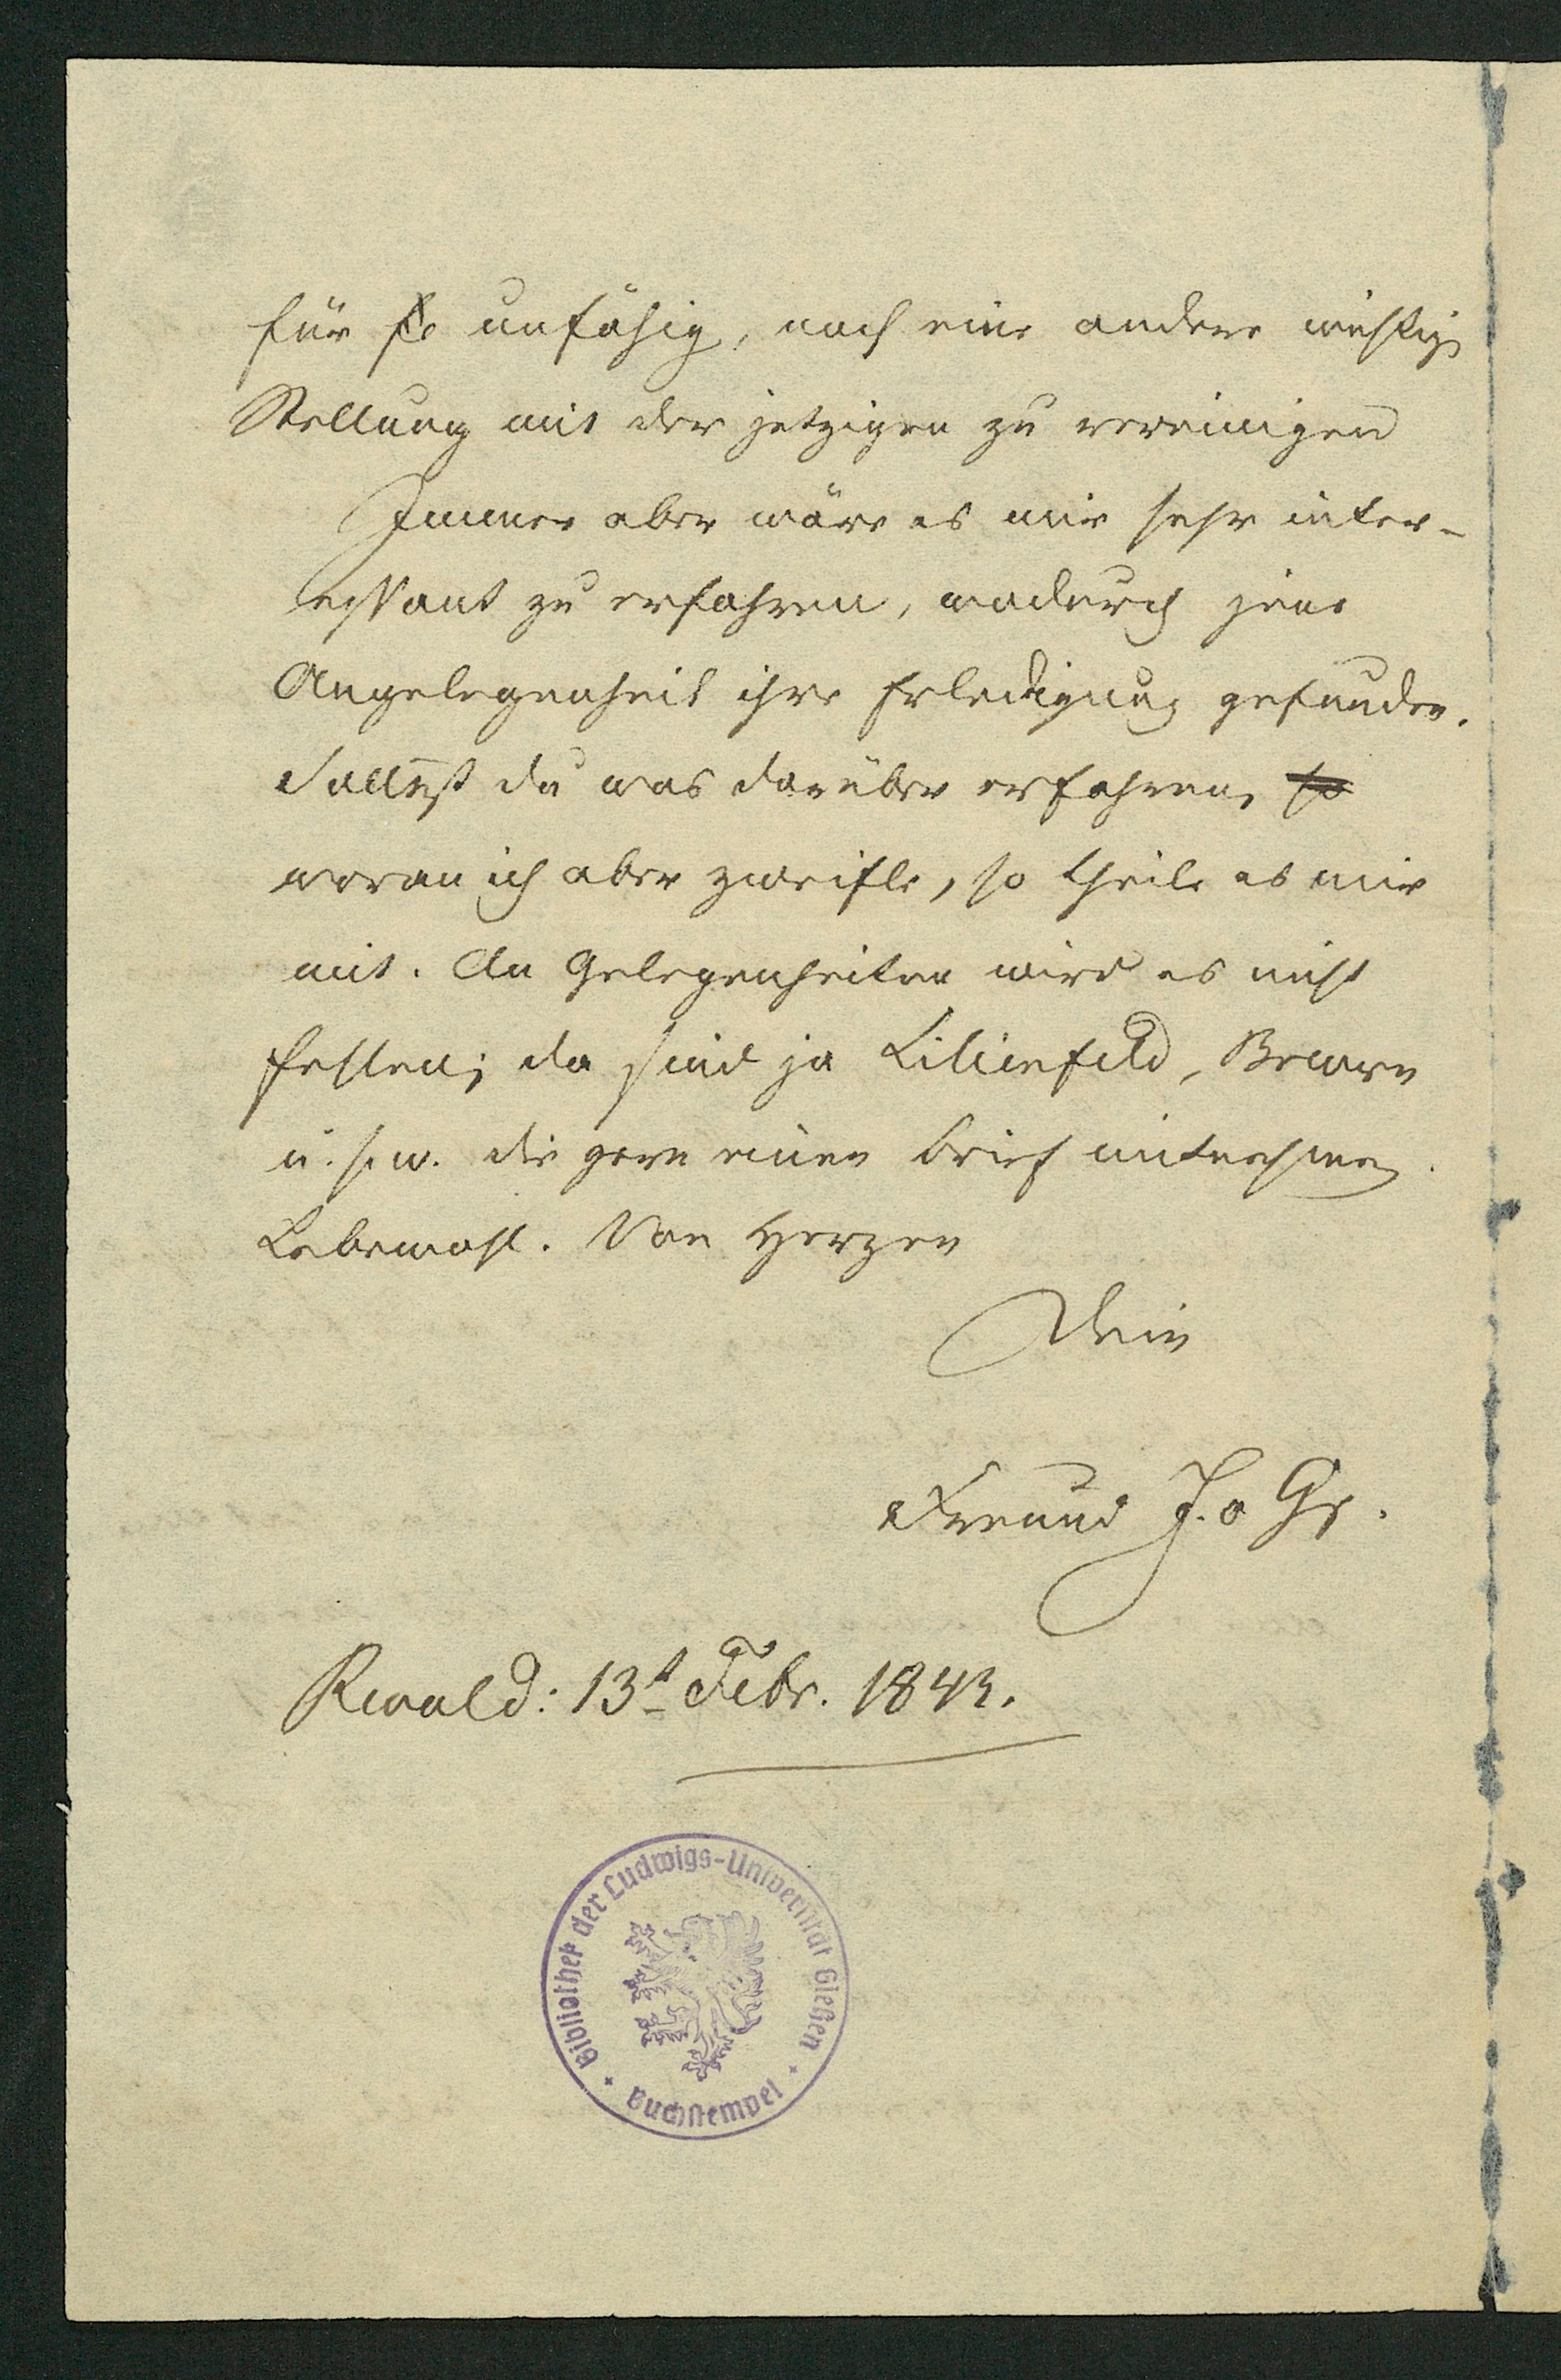 für fe unfähig, noch eine andere wichtige
Stellung mit der jetzigen zu vereinigen
Immer aber wäre es mir sehr inter-
essant zu erfahren, wodurch jene
Angelegenheit ihre Erledigung gefunden.
Solltest du was darüber erfahren, so
woran ich aber zweifle, so theile es mir
mit. An Gelegenheiten wird es nicht
fehlen; da sind ja Lilienfeld,
u. s. w. die gern einen Brief mitnehmen.
Lebewohl. Von Herzen
Dein
Freund J. o Gr.
Rwald: 13t Febr. 1843.
Bibliothek der Ludwigs-Universität Gießen
Buchstempel